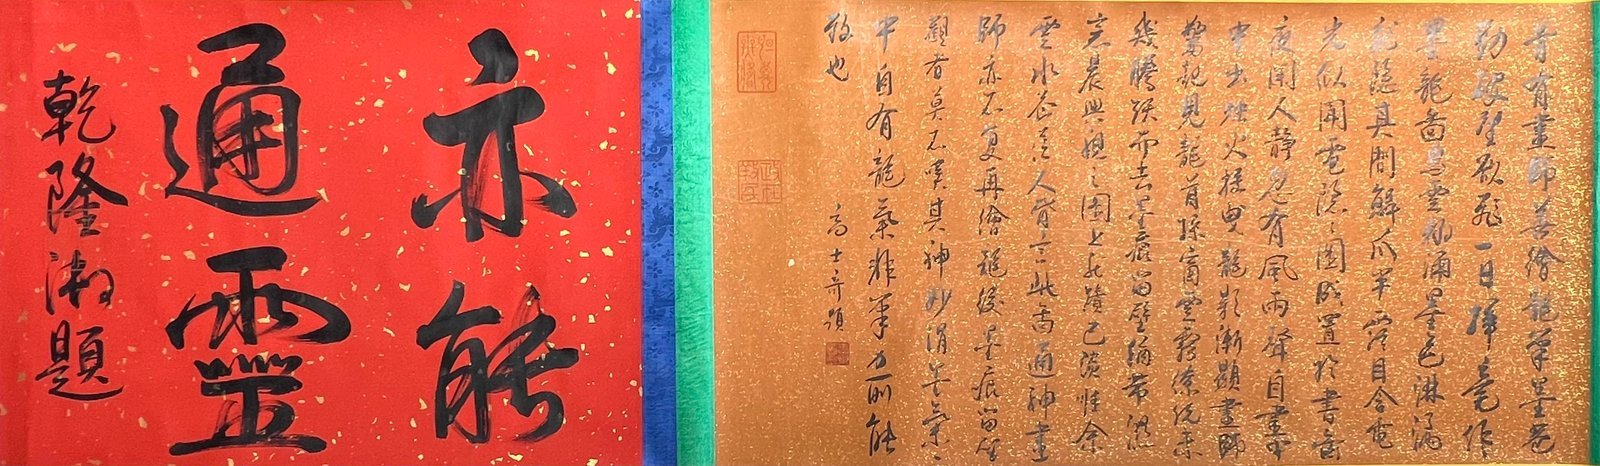 昔有畫師善繪龍筆墨蒼
勁破壁欲飛一日揮毫作
墨龍圖雲翻涌墨色淋漓
龍隱其間鱗爪半露目含電
光似聞雷隱隱圖成置於書齋
夜闌人静忽有風雨聲自畫
中出燭火搖曳龍影漸顯畫師
驚起見龍首探窗雲霧繚繞未
幾騰躍而去墨痕留壁猶帶濕
意晨興視之圖上蹟已淡惟余
雲水蒼茫人皆言此畫通神畫
師亦不复再繪龍後墨痕留壁
觀者莫不嘆其神妙謂筆墨之
中自有龍氣非筆力所能
致也
高士奇題
亦能
通靈
乾隆御題